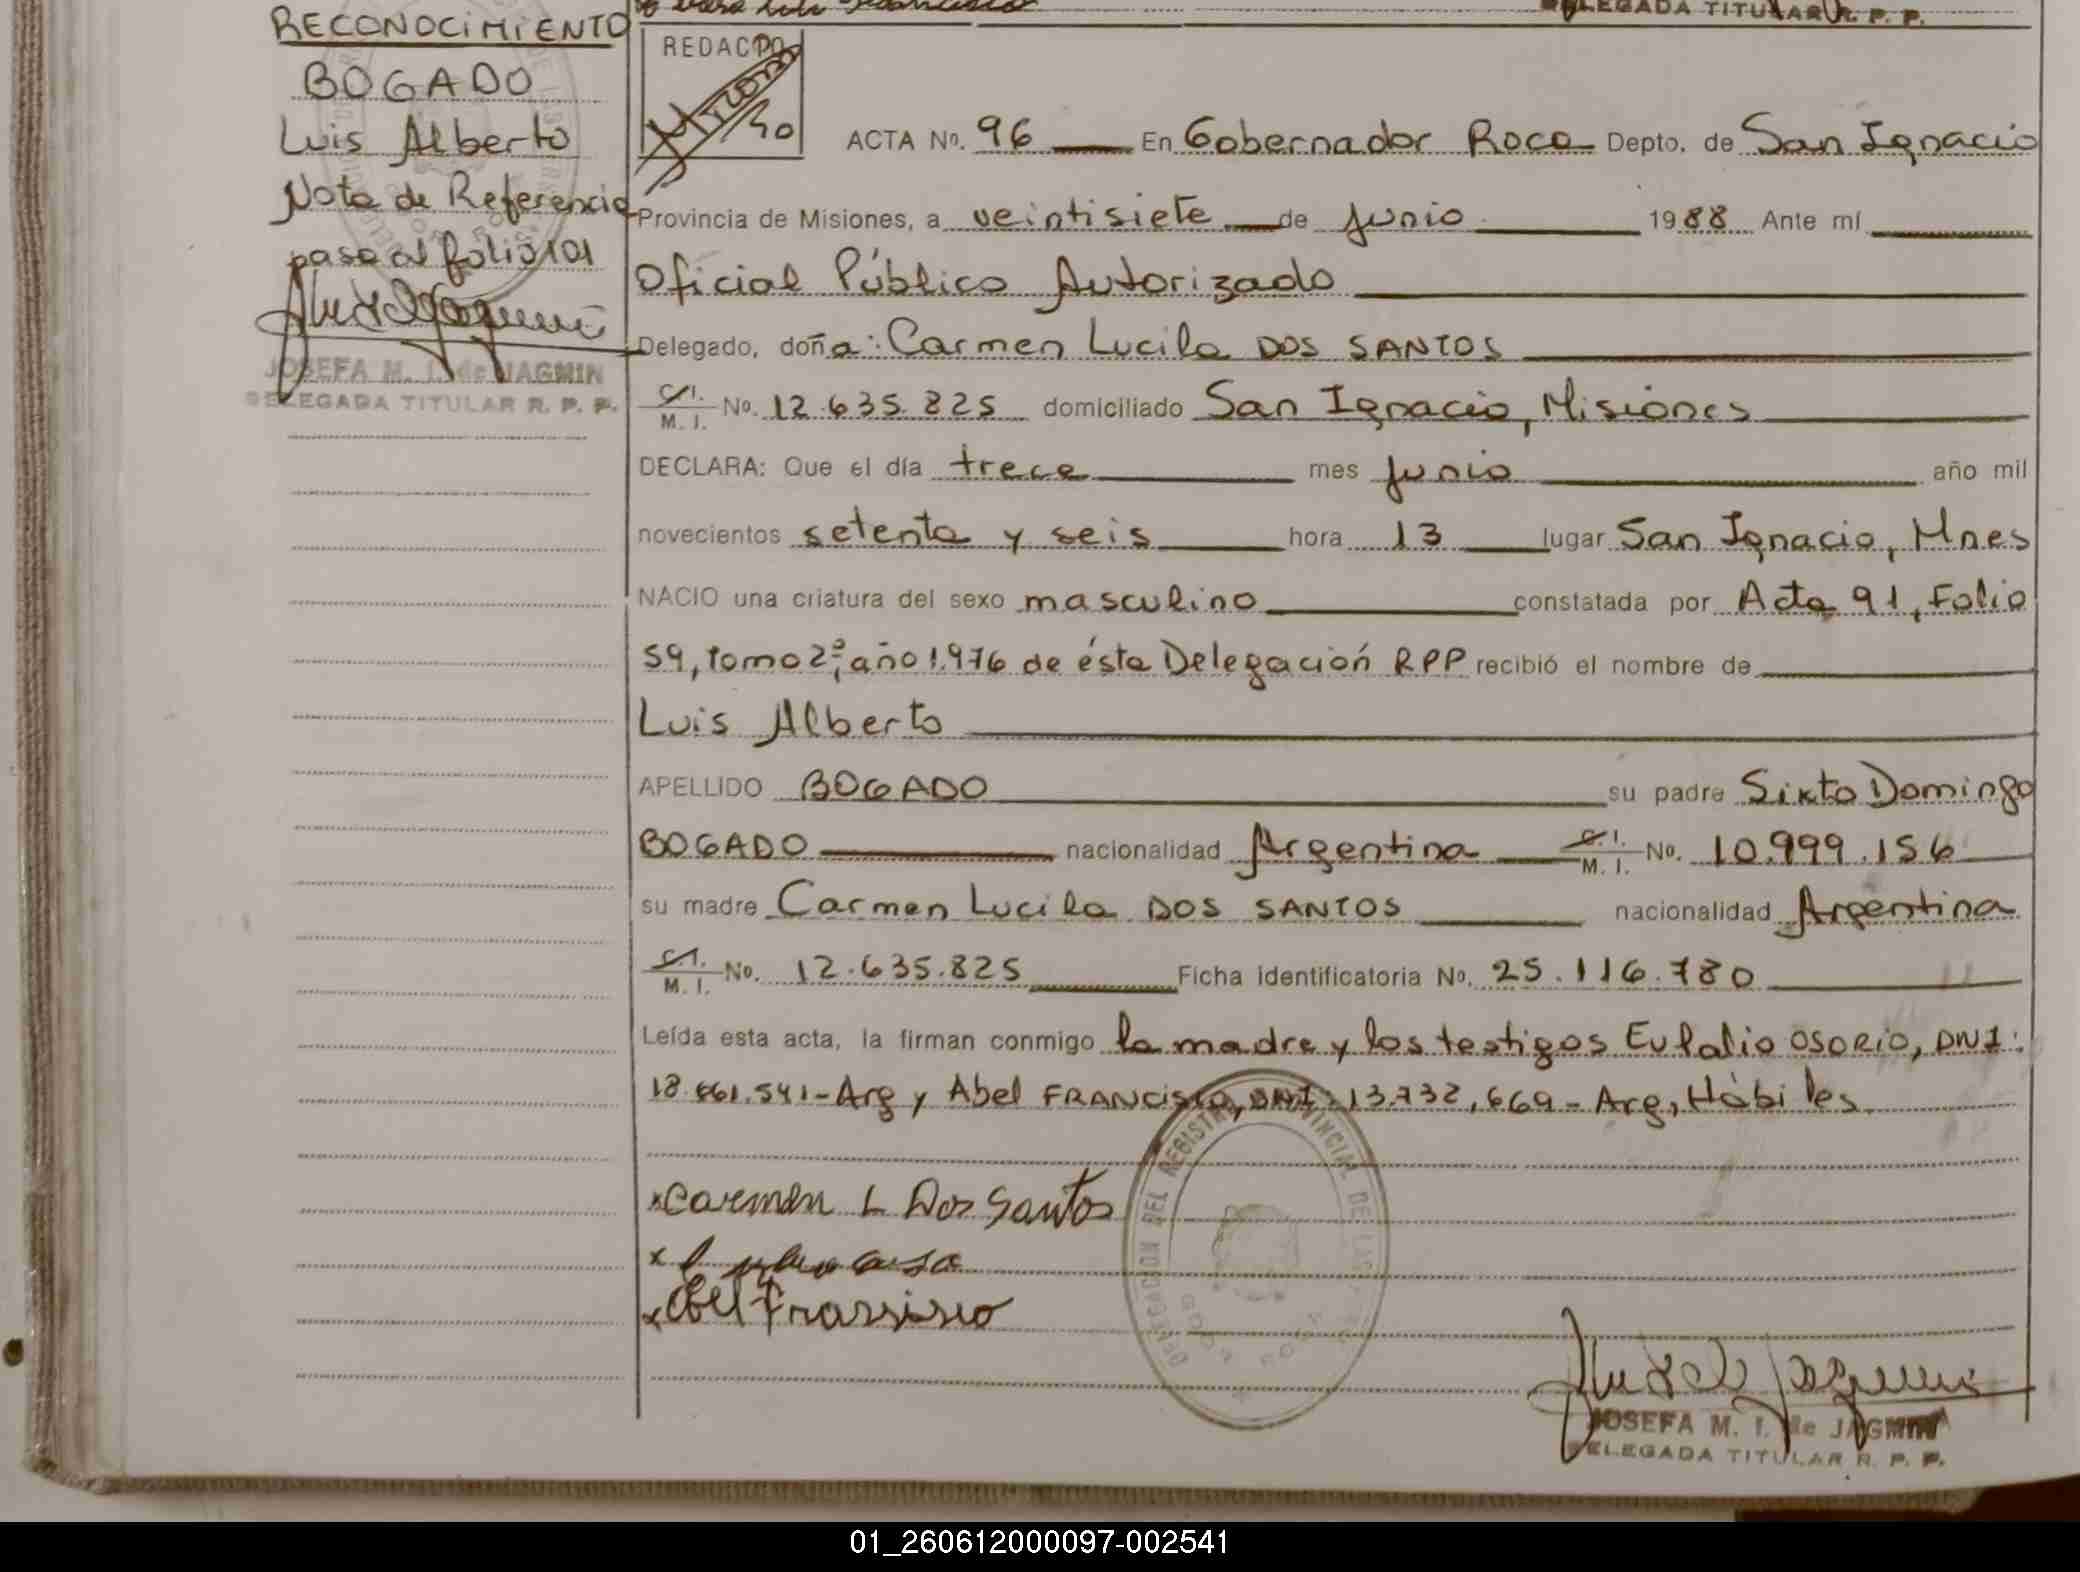 RECONOCIMIENTO
BOGADO
Luis Alberto
Nota de Referencia
pasa al folio 101
JOSEFA M. I. de JAGMIN
DELEGADA TITULAR R. P. P.
DELEGADA TITULAR R. P. P.
REDACTO
ACTA No. 96 En Gobernador Roca Depto. de San Ignacio
Provincia de Misiones, a veintisiete de junio 1988 Ante mí
Oficial Público Autorizado
Delegado, doña: Carmen Lucila DOS SANTOS
C.I. M. I. No. 12.635.825 domiciliado San Ignacio, Misiones
DECLARA: Que el día trece mes junio año mil
novecientos setenta y seis hora 13 lugar San Ignacio, Mnes
NACIO una criatura del sexo masculino constatada por Acta 91, Folio
59, Tomo 2º, año 1.976 de ésta Delegación RPP recibió el nombre de
Luis Alberto
APELLIDO BOGADO su padre Sixto Domingo
BOGADO nacionalidad Argentina C.I. M. I. No. 10.999.156
su madre Carmen Lucila DOS SANTOS nacionalidad Argentina
C.I. M. I. No. 12.635.825 Ficha identificatoria No. 25.116.780
Leída esta acta, la firman conmigo la madre y los testigos Eulalio OSORIO, DNI:
18.661.541-Arg y Abel FRANCISCO, DNI: 13.732,669- Arg, Hábiles
x Carmen L Dos Santos
x
x Abel Fransisco
DELEGACION DEL REGISTRO PROVINCIAL DE LAS
GDOR ROCA
JOSEFA M. I. de JAGMIN
DELEGADA TITULAR R. P. P.
01_260612000097-002541